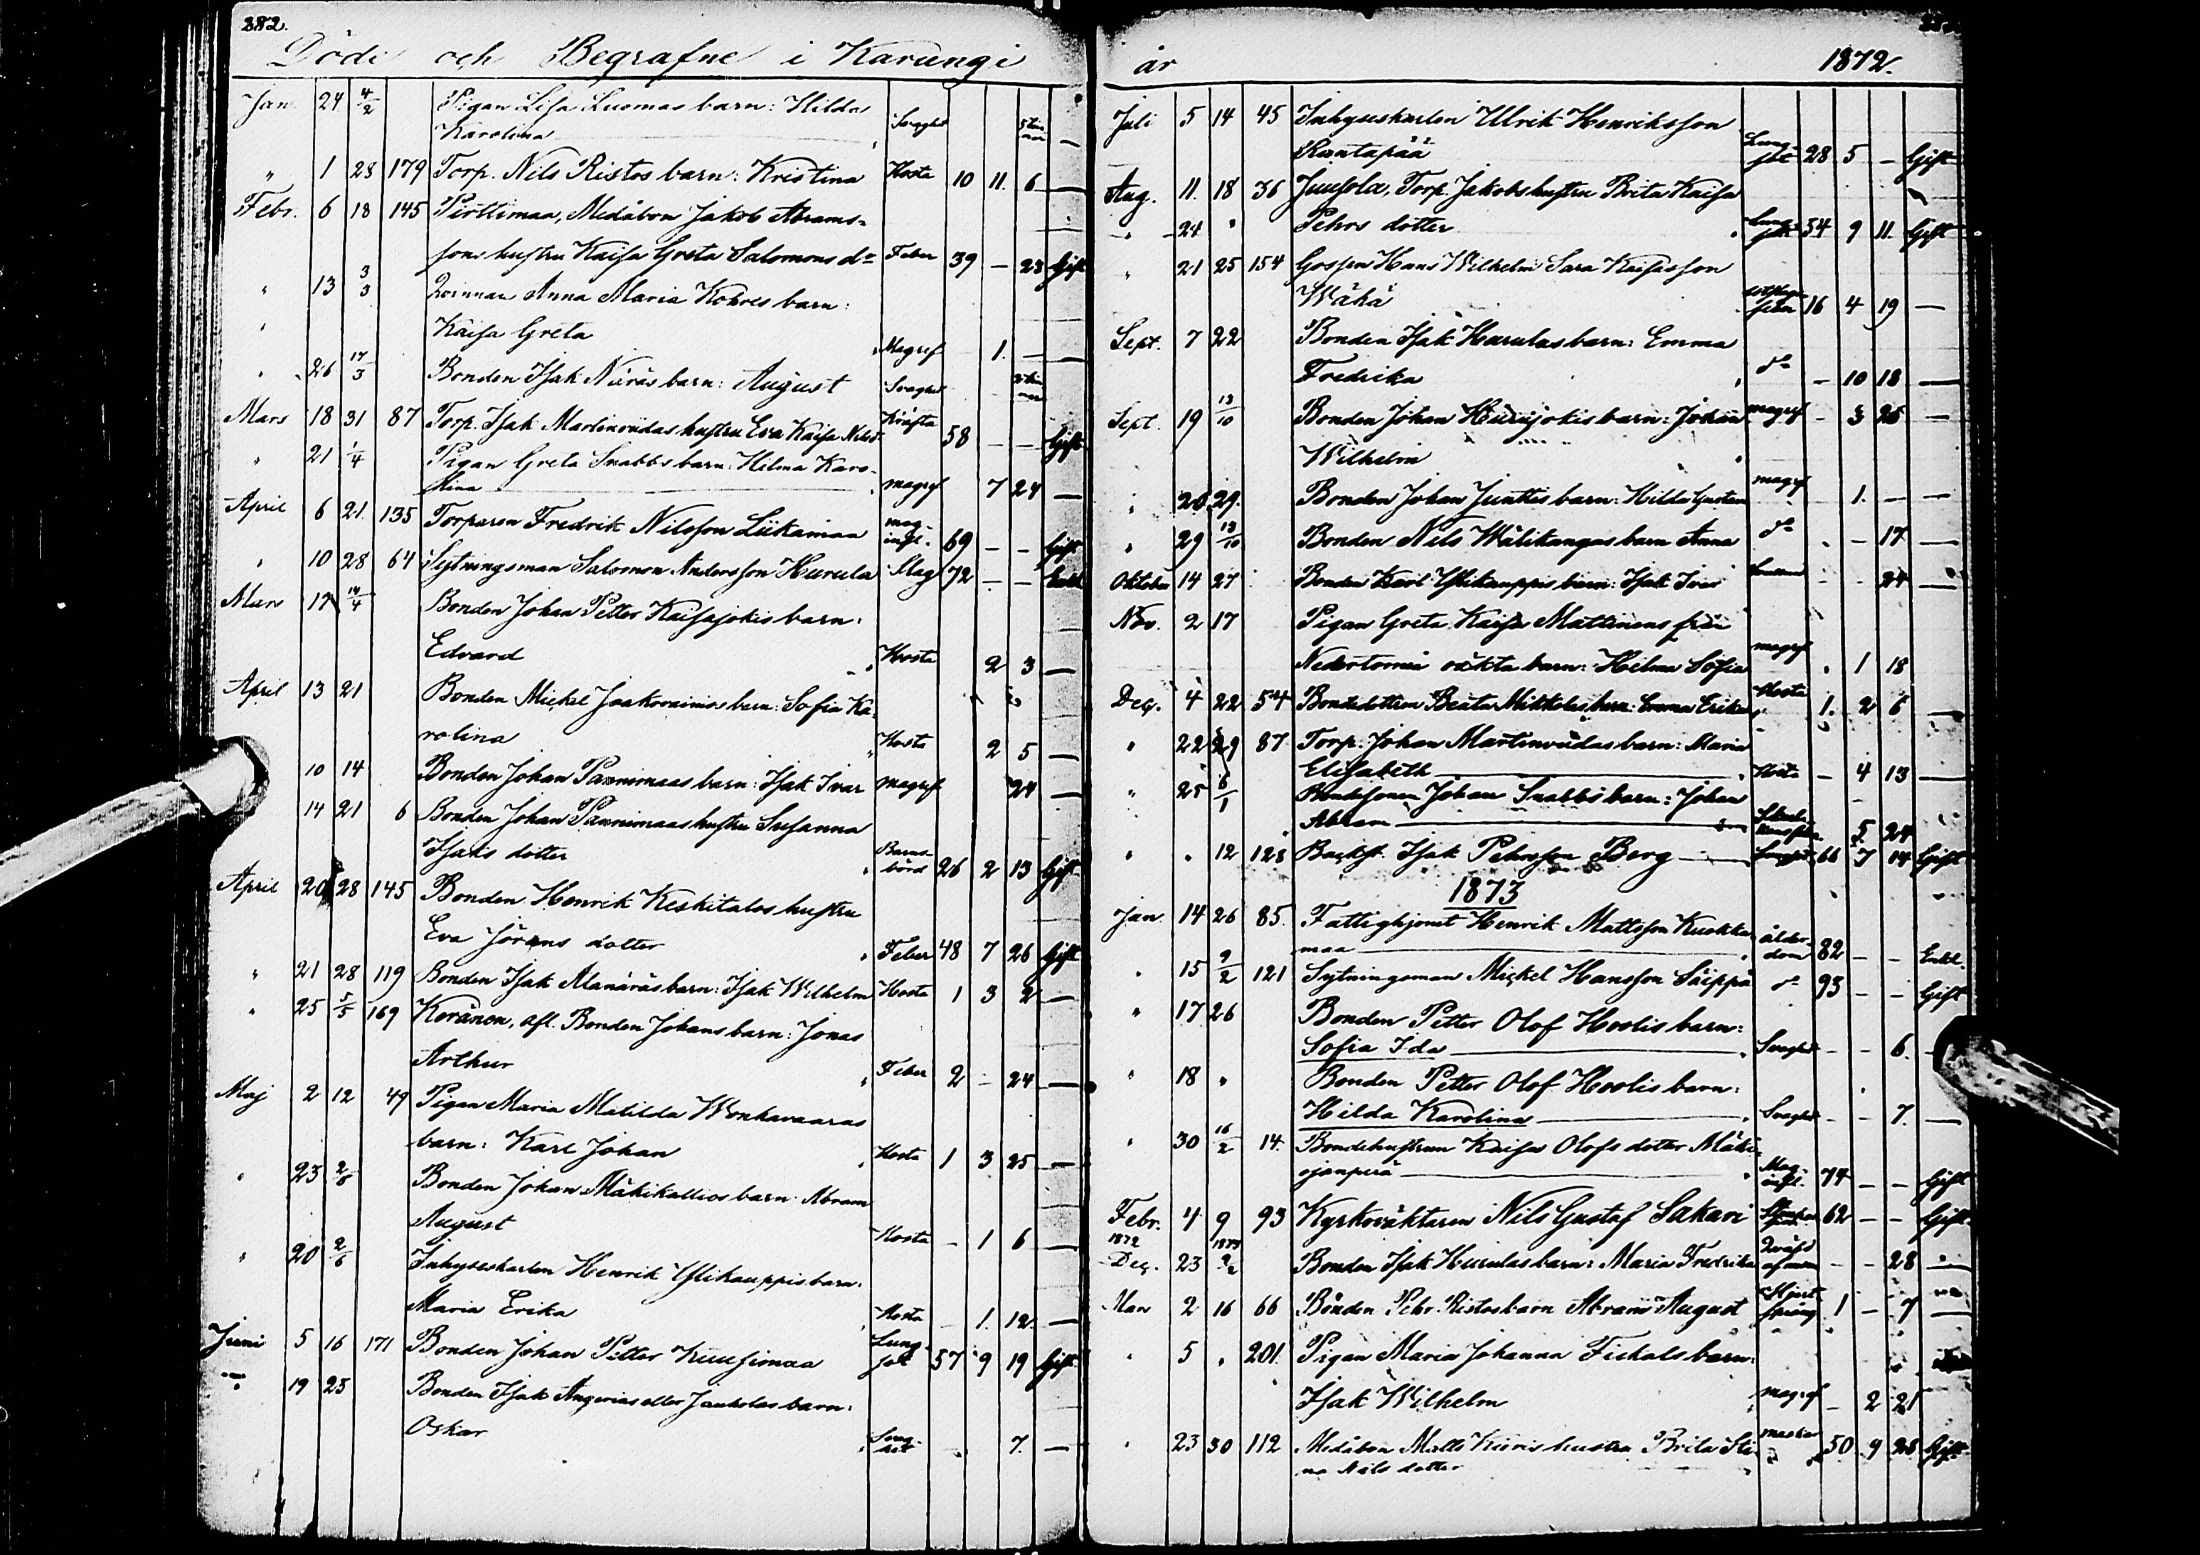 282.
Döde och Begrafne i Karungi
Jan. 24 4/2 Pigan Lisa Luomas barn: Hilda
Karolina Svaghet
" 1 28 179 Torp. Nils Ristos barn: Kristina Hosta 10 11. 6 —
Febr. 6 18 145 Pirttimaa, Medåbon Jakob Abrams-
sons hustru Kaisa Greta Salomons dr Feber 39 — 23 Gift
" 13 3/3 Qvinnan Anna Maria Kohres barn:
Kaisa Greta Magref 1. — —
" 26 17/3 Bonden Isak Näräs barn: August Svaghet
Mars 18 31 87 Torp. Isak Martinvüdas hustru Eva Kaisa Nilsd. 58 — — Gift
" 21 1/4 Pigan Greta Snabbs barn: Hilma Karo-
lina magref 7 24 —
April 6 21. 135 Torparen Fredrik Nilsson Liikamaa mag-infl. 69 — — Gift
" 10 28 64 Sytningsman Salomon Andersson Hurula Slag 72 — —
Mars 17 14/4 Bonden Johan Petter Kaisajokis barn:
Edvard Hosta 2 3 —
April 13 21 Bonden Mickel Jaakovainios barn: Sofia Ka-
rolina Hosta 2 5 —
10 14 Bonden Johan Pannimaas barn: Isak Ivar magref 24 —
14 21 6 Bonden Johan Pannimaas hustru Susanna
Isaks dotter Barnsbörd 26 2 13 Gift
April 20 28 145 Bonden Henrik Keskitalos hustru
Eva Jörans dotter Feber 48 7 26 Gift
" 21 28 119 Bonden Isak Alanäräs barn: Isak Wilhelm Hosta 1 3 2 —
" 25 5/5 169 Koränen, afl. Bonden Johans barn: Jonas
Arthur Feber 2 — 24 —
Maj 2 12 49 Pigan Maria Matilda Wonkavaaras
barn: Karl Johan Hosta 1 3 25 —
" 23 2/6 Bonden Johan Mäkikallios barn: Abram
August Hosta — 1 6 —
" 20 2/6 Inhyseskarlen Henrik Ylikauppis barn:
Maria Erika Hosta — 1. 12. —
Juni 5 16 171 Bonden Johan Petter Kuusimaa Lungsot 57 9 19 Gift
" 19 23 Bonden Isak Angerias eller Jauholas barn:
Oskar Svaghet 7. —
år 1872.
Juli 5 14 45 Inhyseskarlen Ulrik Henriksson
Rantapää Lungsot 28 5 — Gift
Aug. 11. 18 36 Juusola, Torp. Jakobs hustru Brita Kaisa
" 24 " Pehrs dotter Lungsot 34 9 11. Gift
" 21 25 154 Gossen Hans Wilhelm Sara Kaisasson
Wähä 16 4 19 —
Sept. 7 22 Bonden Isak Hurulas barn: Emma
Fredrika do — 10 18 —
Sept. 19 13/10 Bonden Johan Hurujokis barn: Johan magref — 3 26 —
Wilhelm
" 20 29. Bonden Johan Junttis barn: Hilda Gustava magref 1. — —
" 29 13/10 Bonden Nils Wälikangas barn Anna do — 17. —
Oktober 14 27 Bonden Karl Ylikauppis barn: Isak Ivar — — 24 —
Nov. 2 17 Pigan Greta Kaisa Mattinens från
Nedertorneå oäkta barn: Helma Sofia magref 1 18
Dec. 4 22 54 Bondedottren Beata Mikkolas barn: Emma Erika Hosta 1. 2 6 —
" 22 29 87 Torp. Johan Martinvüdas barn: Maria
Elisabeth Hosta — 4 13 —
" 25 6/1 Bondesonen Johan Snabbs barn: Johan
Abram 5 24
" " 12 128 Backst. Isak Pehrsson Berg Lungsot 66 7 14 Gift
1873
Jan. 14 26 85. Fattighjonet Henrik Mattsson Kuokka-
maa ålderdom 82 — — Enkl.
" 15 9/2 121 Sytningsman Mickel Hansson Säippä do 93 — — Gift
" 17 26 Bonden Petter Olof Hoolis barn:
Sofia Ida Svaghet — — 6. —
" 18 " Bonden Petter Olof Hoolis barn:
Hilda Karolina Svaghet — — 7. —
" 30 16/2 14. Bondehustrun Kaisa Olofs dotter Mäki-
ojanperä Mag-infl. 74 — — Gift
Febr. 4 9 93 Kyrkoväktaren Nils Gustaf Sakari 62 — — Gift
1872 1873
Dec. 23 9/2 Bonden Isak Hurulas barn: Maria Fredrika Qväfd af — — 28 —
Mars 2 16 66 Bonden Pehr Ristos barn Abram August Hjertsprång 1 — 7 —
" 5 " 201. Pigan Maria Johanna Fiskals barn:
Isak Wilhelm magref — 2 21
" 23 30 112 Medåbon Matts Kieris hustru Brita Sti-
na Nils dotter 50 9 25 Gift